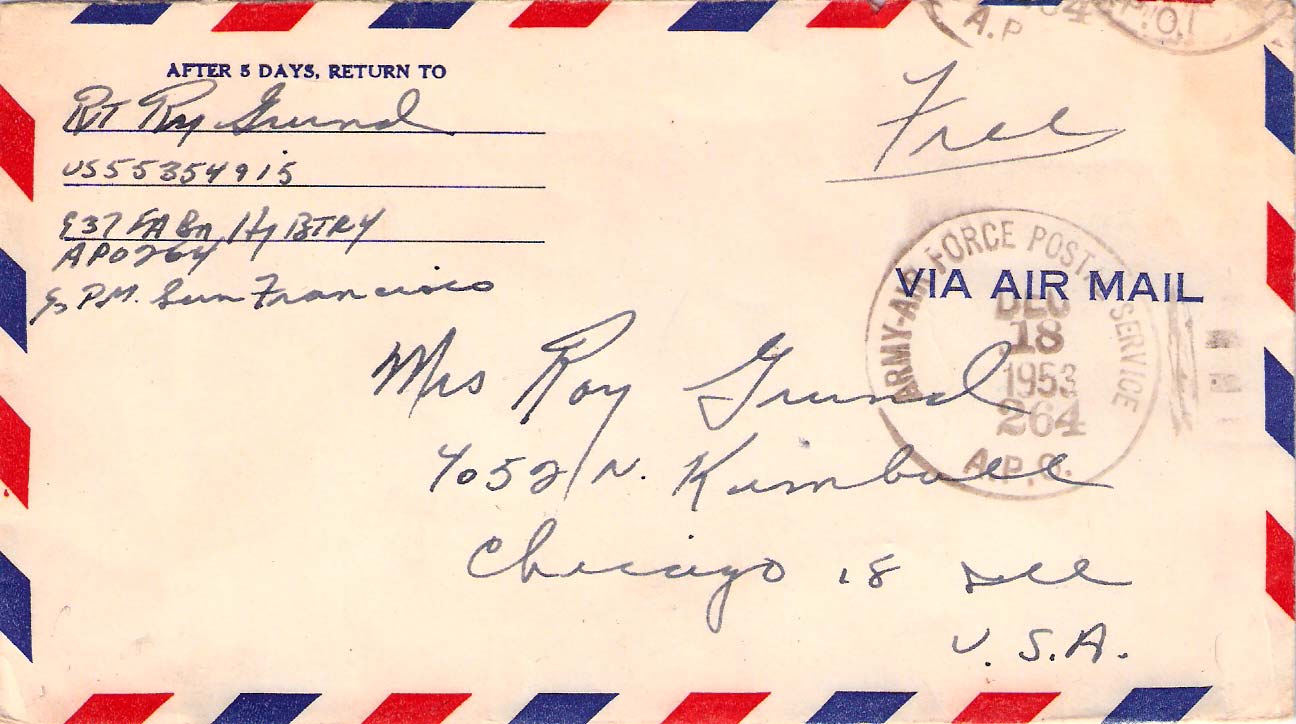 A.P
P.O.
AFTER 5 DAYS, RETURN TO
Pvt Roy Grund
US55354915
937 FA Bn Hq BTRY
APO 264
c/o P.M. San Francisco
Free
VIA AIR MAIL
ARMY-AIR FORCE POSTAL SERVICE
DEC
18
1953
264
A.P.O.
Mrs Roy Grund
4052 N. Kimball
Chicago 18 Ill
U.S.A.